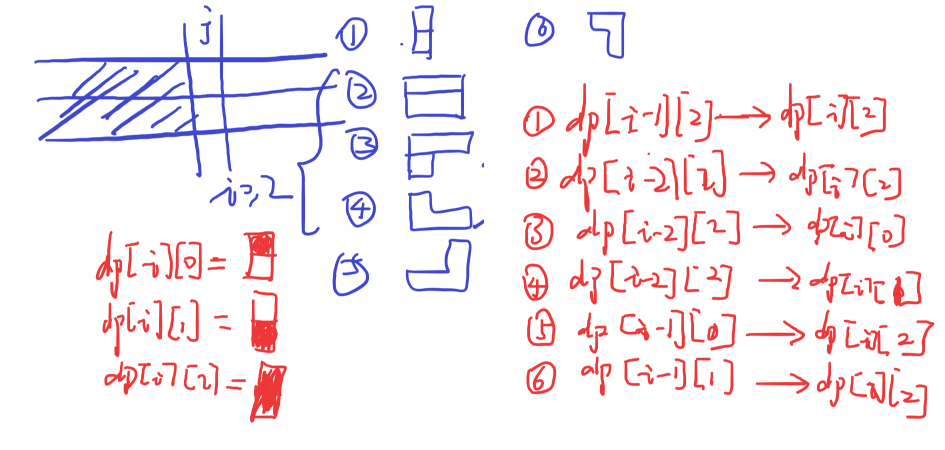 j
i>,2
①
②
③
④
⑤
⑥
dp[i][0]=
dp[i][1]=
dp[i][2]=
① dp[i-1][2]→dp[i][2]
② dp[i-2][2]→dp[i][2]
③ dp[i-2][2]→dp[i][0]
④ dp[i-2][2]→dp[i][1]
⑤ dp[i-1][0]→dp[i][2]
⑥ dp[i-1][1]→dp[i][2]